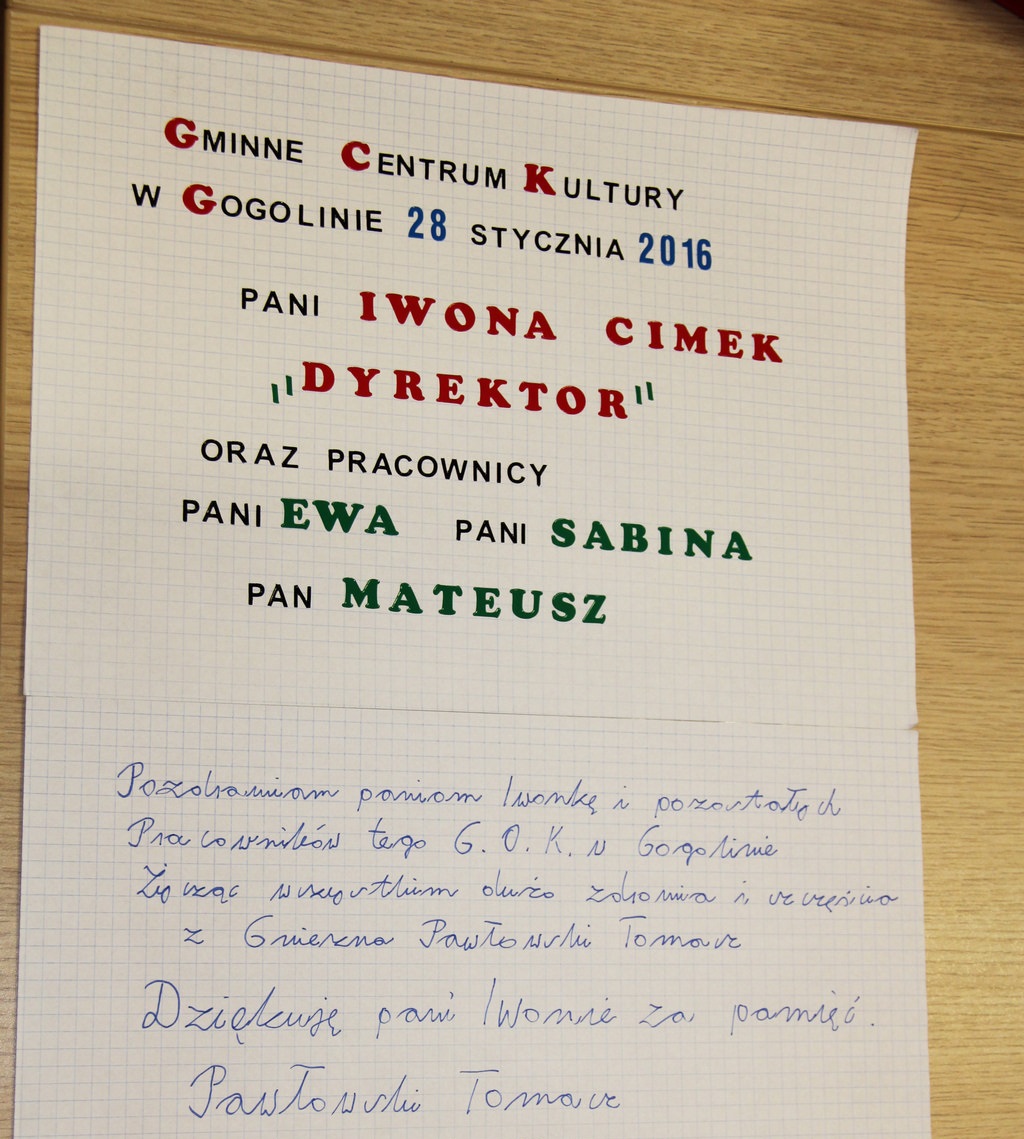 GMINNE CENTRUM KULTURY
W GOGOLINIE 28 STYCZNIA 2016
PANI IWONA CIMEK
„DYREKTOR"
ORAZ PRACOWNICY
PANI EWA PANI SABINA
PAN MATEUSZ
Pozdrawiam paniom Iwonkę i pozostałych
Pracowników tego G.O.K. w Gogolinie
Życząc wszystkim dużo zdrowia i szczęścia
z Gniezna Pawłowski Tomasz
Dziękuję pani Iwonie za pamięć.
Pawłowski Tomasz